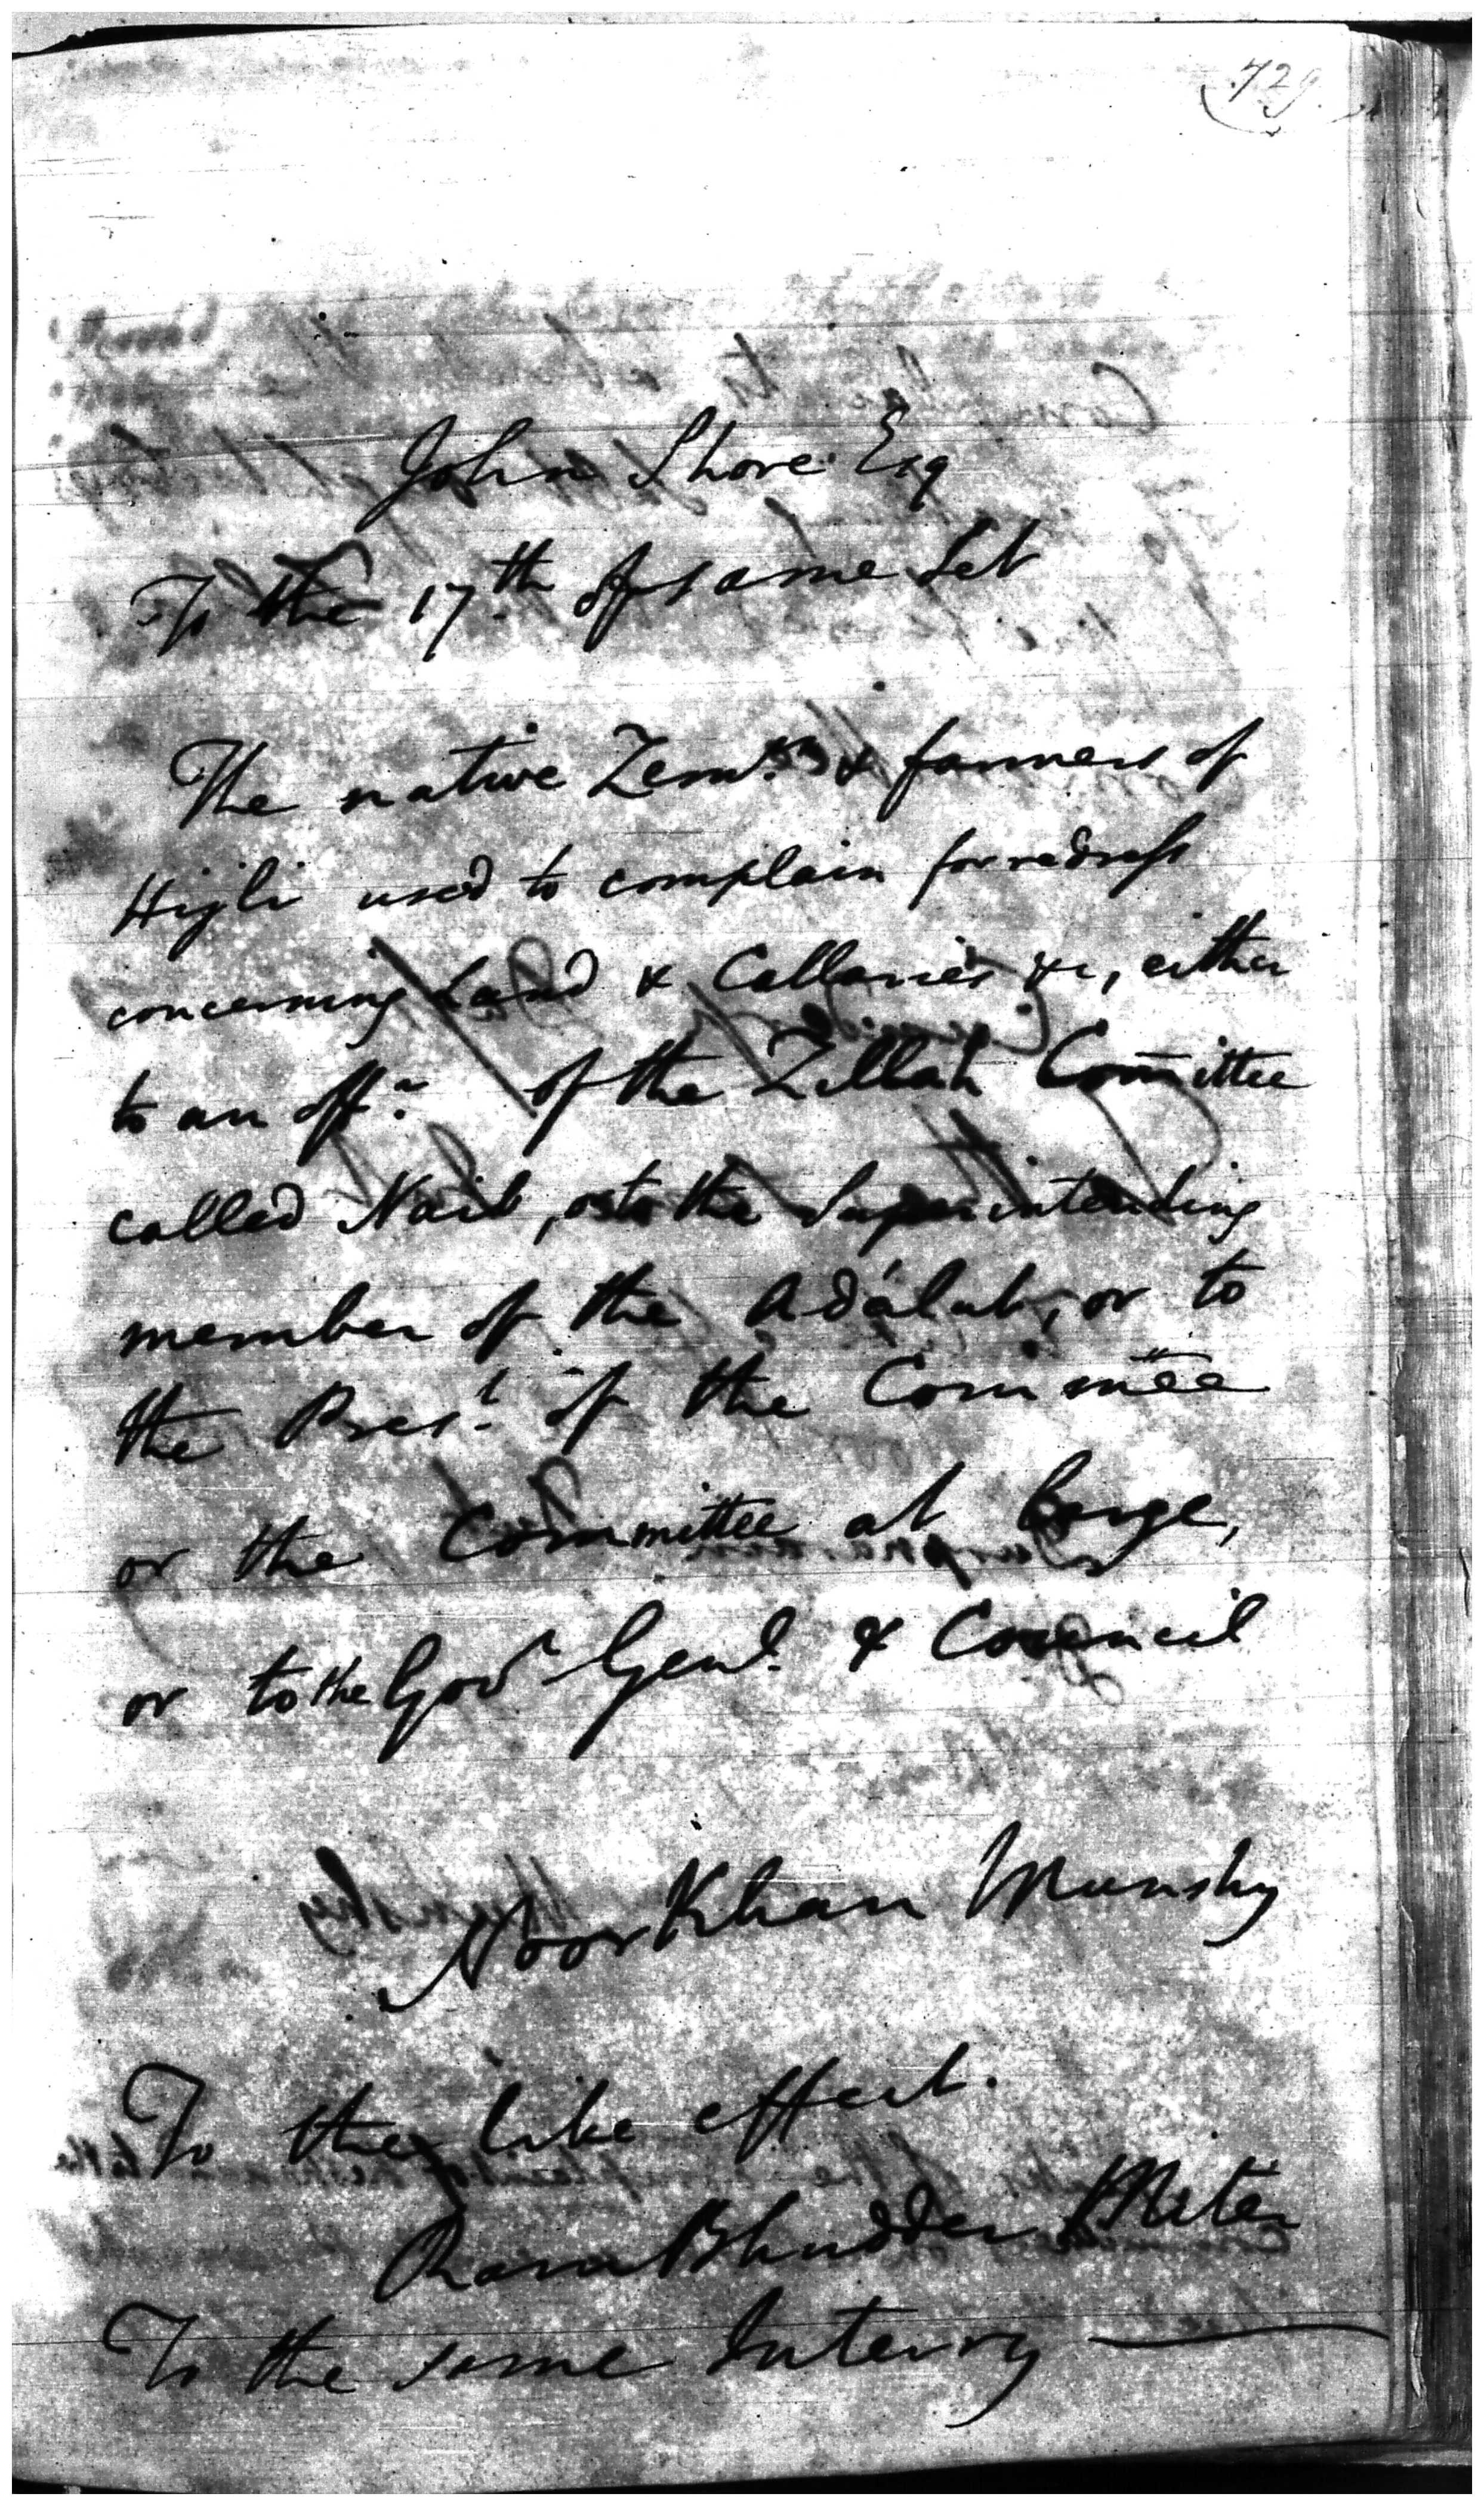 729.
John Shore Esq
To the 17th of same Set
The native Zemrs & farmers of
Hijli used to complain for redress
concerning Land & Collaries &c, either
to an offr of the Zillah Comittee
called Naib, or to the Superintending
member of the Adálut, or to
the Prest of the Commttee
or the Committee at large,
or to the Govr Genl. & Council
Noor Khan Munshy
To the like effect.
Ram Bhudder Miter
To the same Interry